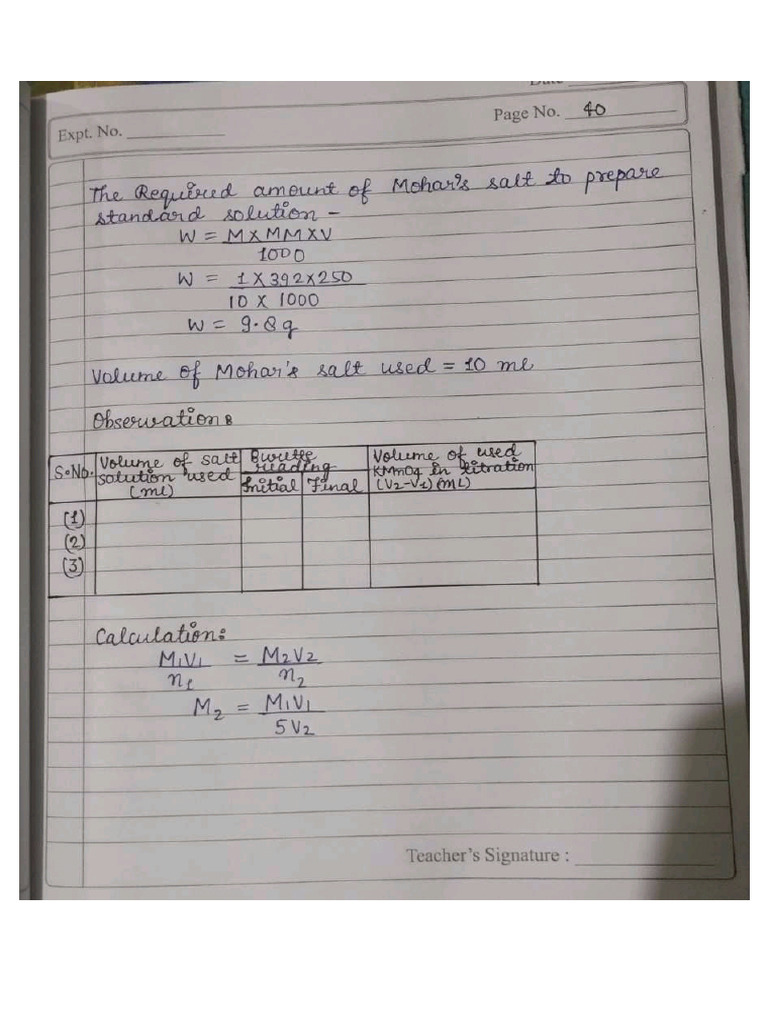 Date
Expt. No.
Page No. 40
The Required amount of Mohar's salt to prepare
standard solution -
W = M X MM X V
1000
W = 1 X 392 X 250
10 X 1000
W = 9.8 g
Volume of Mohar's salt used = 10 ml
Observation:
S.No. Volume of salt solution used (ml) Burette reading Initial Final Volume of used KMnO4 in titration (V2-V1) (ML)
(1)
(2)
(3)
Calculation:
M1V1 = M2V2
n1 n2
M2 = M1V1
5V2
Teacher's Signature :